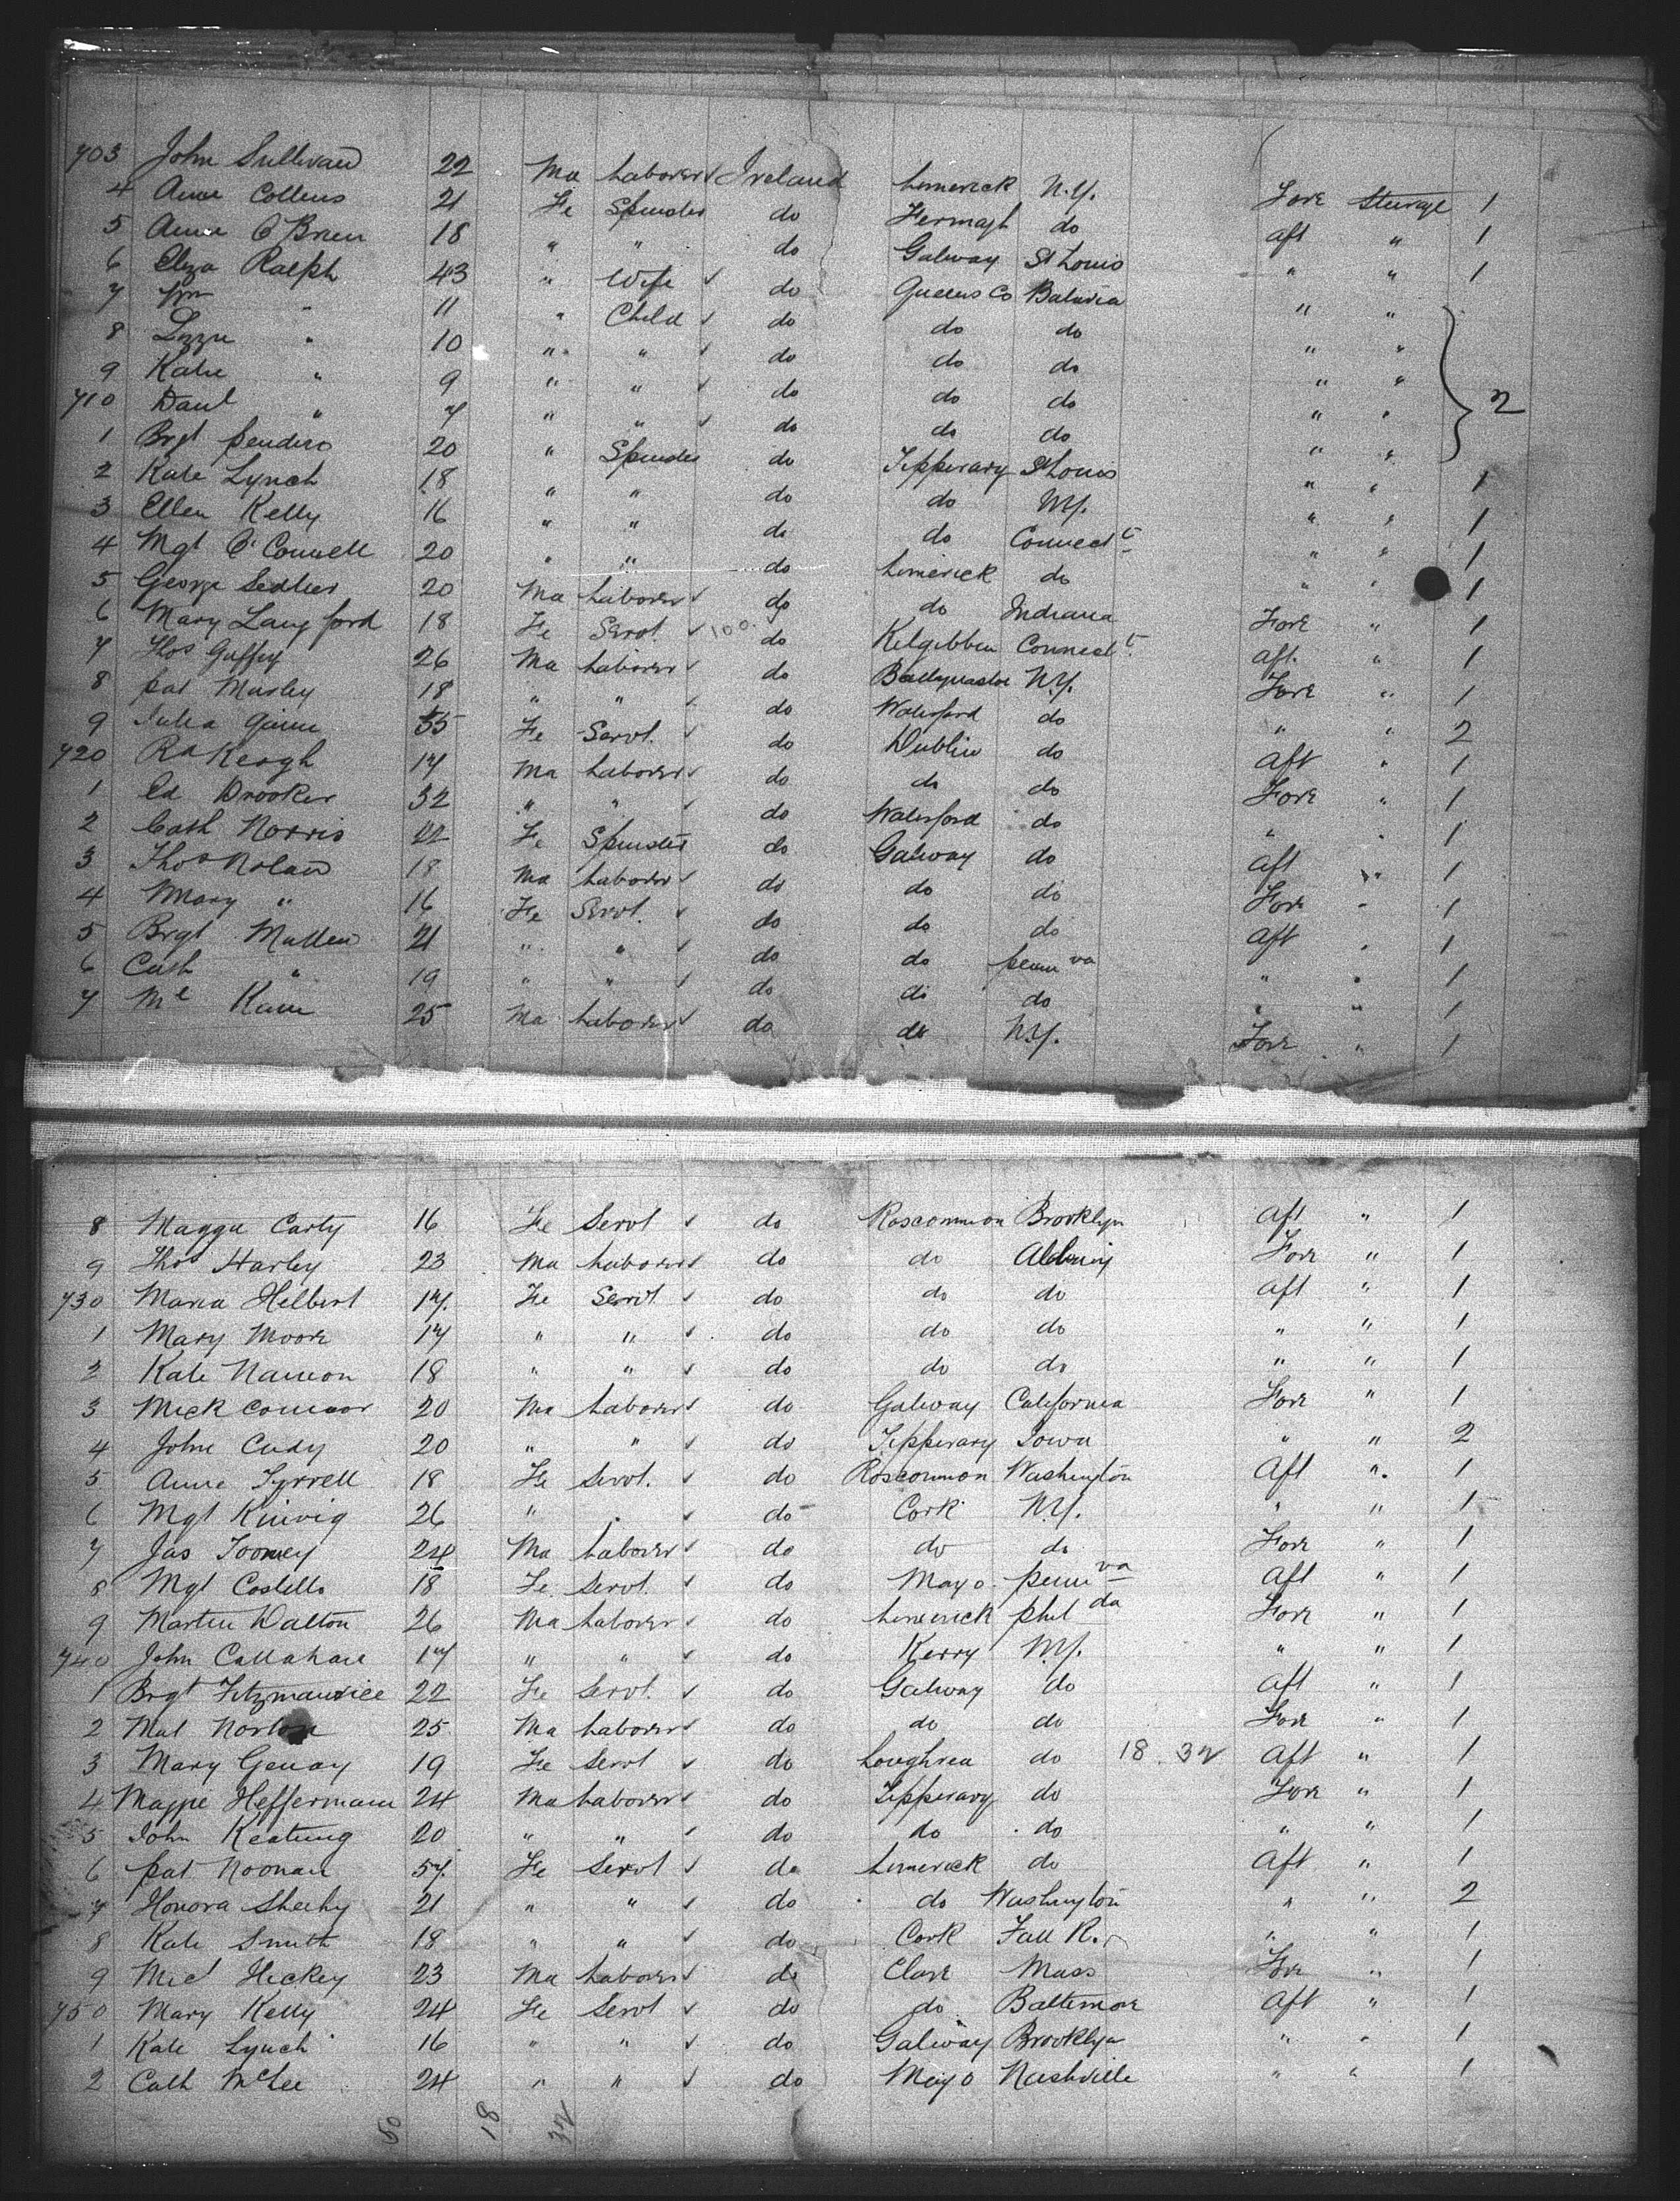 703 John Sullivan 22 Ma Laborer Ireland Limerick N.Y. Fore Steerage 1
4 Anne Collens 21 Fe Spinster do Fermagh do aft " 1
5 Anne O'Brien 18 " " do Galway St Louis " " 1
6 Eliza Ralph 43 " Wife do Queens Co Batavia " "
7 Wm " 11 " Child do do do " "
8 Lizzie " 10 " " do do do " " 2
9 Katie " 9 " " do do do " "
710 Danl " 7 " " do do do " "
1 Brgt 20 " Spinster do Tipperary St Louis " " 1
2 Kate Lynch 18 " " do do N.Y. " " 1
3 Ellen Kelly 16 " " do do Connect t " " 1
4 Mgt O'Connell 20 " " do Limerick do " " 1
5 George Sedlier 20 Ma Laborer do do Indiana Fore " 1
6 Mary Langford 18 Fe Servt. 100. do Kilgibben Connect t. aft. " 1
7 Thos Guffey 26 Ma Laborer do N.Y. Fore " 1
8 Pat Murley 18 " " do Waterford do " " 2
9 Julia Quinn 35 Fe Servt. do Dublin do aft " 1
720 Rd Keogh 17 Ma Laborer do do do Fore " 1
1 Ed Brooker 32 " " do Waterford do " " 1
2 Cath Norris 22 Fe Spinster do Galway do aft " 1
3 Thos Nolan 18 Ma Laborer do do do Fore " 1
4 Mary " 16 Fe Servt. do do do aft " 1
5 Brgt Mullen 21 " " do do Penn va " " 1
6 Cath " 19 " " do do do " " 1
7 Ml Kain 25 Ma Laborer do do N.Y. Fore " 1
8 Maggie Carty 16 Fe Servt do Roscommon Brooklyn aft " 1
9 Thos Harley 23 Ma Laborer do do Albany Fore " 1
730 Maria Hilbert 17. Fe Servt do do do aft " 1
1 Mary Moore 17 " " do do do " " 1
2 Kate Namon 18 " " do do do " " 1
3 Mick Connor 20 Ma Laborer do Galway California Fore " 1
4 John Cudy 20 " " do Tipperary Iowa " " 2
5 Anne Tyrrell 18 Fe Servt. do Roscommon Washington aft " 1
6 Mgt Kinivig 26 " " do Cork N.Y. " " 1
7 Jas Toomey 24 Ma Laborer do do do Fore " 1
8 Mgt Costello 18 Fe Servt. do Mayo Penn va aft " 1
9 Martin Dalton 26 Ma Laborer do Limerick Phil da Fore " 1
740 John Callahan 17 " " do Kerry N.Y. " " 1
1 Brgt Fitzmaurice 22 Fe Servt. do Galway do aft " 1
2 Mat Norton 25 Ma Laborer do do do Fore " 1
3 Mary Genay 19 Fe Servt do Loughrea do 18. 32 aft " 1
4 Heffernan 24 Ma Laborer do Tipperary do Fore " 1
5 John Keating 20 " " do do do " " 1
6 Pat Noonan 57. Fe Servt do Limerick do aft " 1
7 Honora Sheehy 21 " " do do Washington " " 2
8 Kate Smith 18 " " do Cork Fall R. " " 1
9 Micl Hickey 23 Ma Laborer do Clare Mass Fore " 1
750 Mary Kelly 24 Fe Servt do do Baltimore aft " 1
1 Kate Lynch 16 " " do Galway Brooklyn " " 1
2 Cath McGee 24 " " do Mayo Nashville " " 1
50 18 32